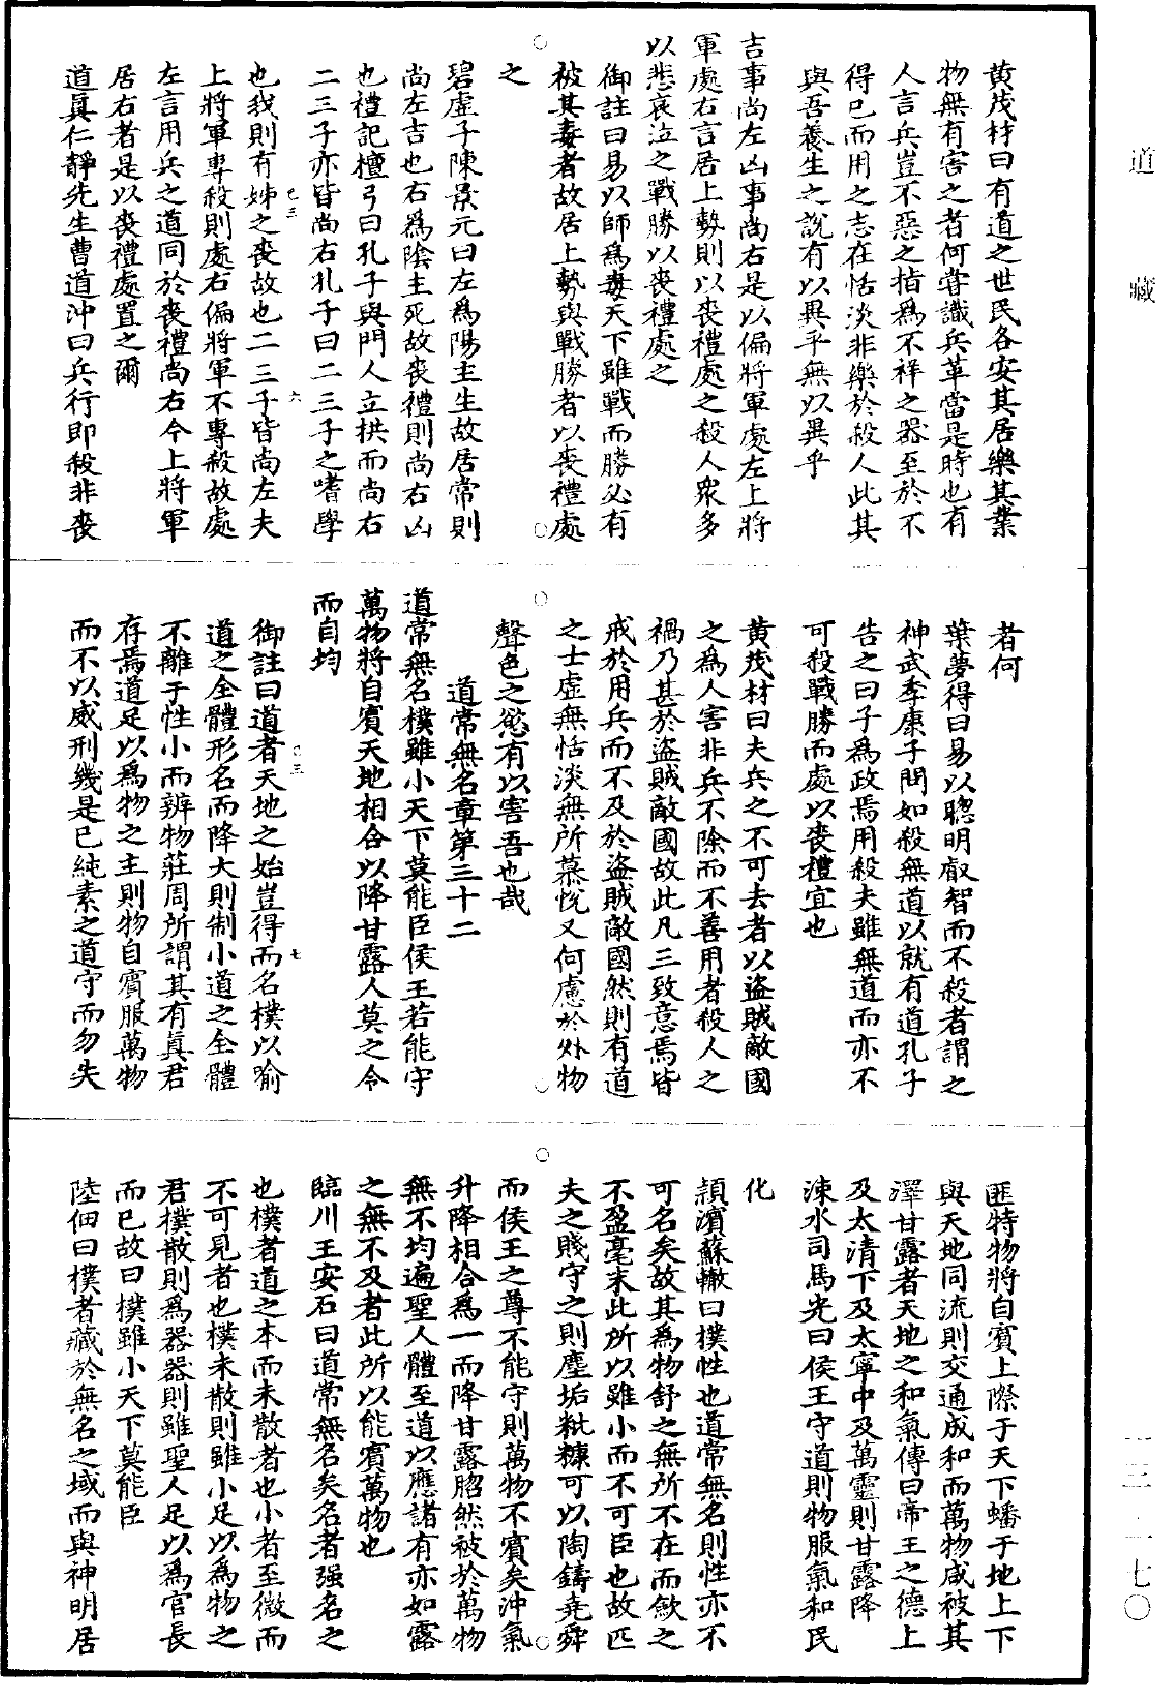 道藏
黄茂材曰有道之世民各安其居樂其業
物無有害之者何嘗識兵革當是時也有
人言兵豈不惡之指爲不祥之器至於不
得已而用之志在恬淡非樂於殺人此其
與吾養生之說有以異乎無以異乎
吉事尚左凶事尚右是以偏將軍處左上將
軍處右言居上勢則以喪禮處之殺人衆多
以悲哀泣之戰勝以喪禮處之
御註曰易以師爲毒天下雖戰而勝必有
被其毒者故居上勢與戰勝者以喪禮處
之
碧虛子陳景元曰左爲陽主生故居常則
尚左吉也右爲陰主死故喪禮則尚右凶
也禮記檀弓曰孔子與門人立拱而尚右
二三子亦皆尚右孔子曰二三子之嗜學
也我則有姊之喪故也二三子皆尚左夫
上將軍專殺則處右偏將軍不專殺故處
左言用兵之道同於喪禮尚右今上將軍
居右者是以喪禮處置之爾
道真仁靜先生曹道沖曰兵行即殺非喪
者何
葉夢得曰易以聰明叡智而不殺者謂之
神武季康子問如殺無道以就有道孔子
告之曰子爲政焉用殺夫雖無道而亦不
可殺戰勝而處以喪禮宜也
黄茂材曰夫兵之不可去者以盜賊敵國
之爲人害非兵不除而不善用者殺人之
禍乃甚於盜賊敵國故此凡三致意焉皆
戒於用兵而不及於盜賊敵國然則有道
之士虛無恬淡無所慕悅又何慮於外物
聲色之慾有以害吾也哉
道常無名章第三十二
道常無名樸雖小天下莫能臣侯王若能守
萬物將自賓天地相合以降甘露人莫之令
而自均
御註曰道者天地之始豈得而名樸以喻
道之全體形名而降大則制小道之全體
不離于性小而辨物莊周所謂其有真君
存焉道足以爲物之主則物自賓服萬物
而不以威刑幾是已純素之道守而勿失
匪特物將自賓上際于天下蟠于地上下
與天地同流則交通成和而萬物咸被其
澤甘露者天地之和氣傳曰帝王之德上
及太清下及太寧中及萬靈則甘露降
涑水司馬光曰侯王守道則物服氣和民
化
潁濱蘇轍曰樸性也道常無名則性亦不
可名矣故其爲物舒之無所不在而斂之
不盈毫末此所以雖小而不可臣也故匹
夫之賤守之則塵垢粃糠可以陶鑄堯舜
而侯王之尊不能守則萬物不賓矣沖氣
升降相合爲一而降甘露脗然被於萬物
無不均遍聖人體至道以應諸有亦如露
之無不及者此所以能賓萬物也
臨川王安石曰道常無名矣名者强名之
也樸者道之本而未散者也小者至微而
不可見者也樸未散則雖小足以爲物之
君樸散則爲器器則雖聖人足以爲官長
而已故曰樸雖小天下莫能臣
陸佃曰樸者藏於無名之域而與神明居
一三-一七〇